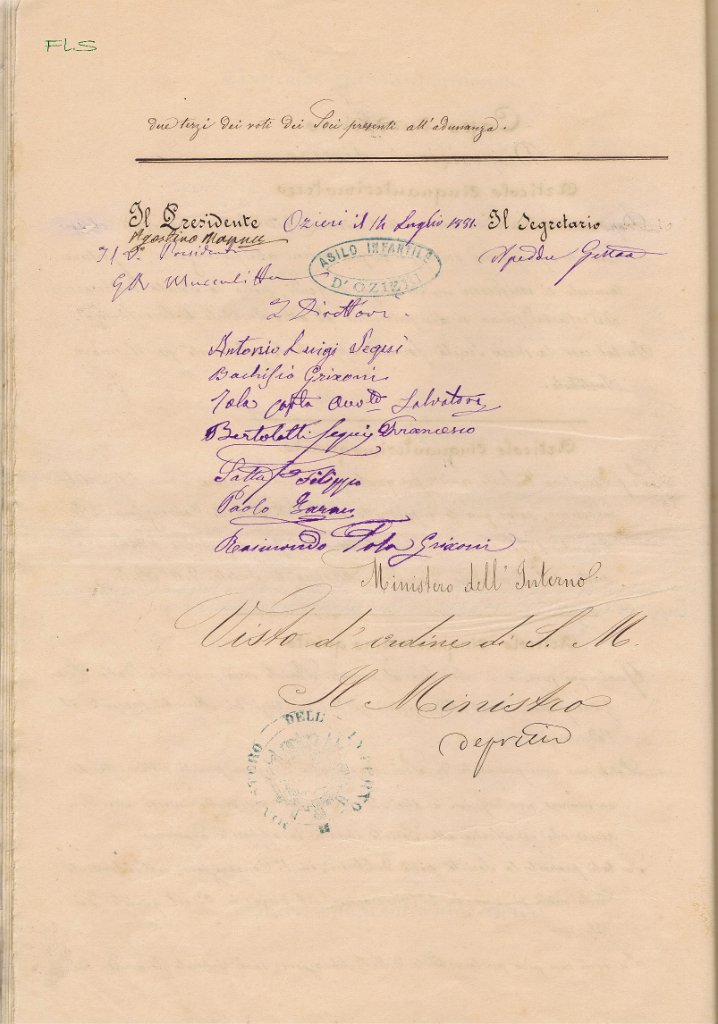 FLS
due terzi dei voti dei Soci presenti all'adunanza.
Il Presidente Ozieri il 14 Luglio 1881. Il Segretario
Agostino
Il Presidente
ASILO INFANTILE D'OZIERI
I Direttori.
Antonio Luigi Segni
Bachisio Grixoni
Tola Avv.to Salvatore
Bertolotti Francesco
Satta Filippo
Paolo
Raimondo Tola Grixoni
Ministero dell'Interno.
Visto d'ordine di S. M.
Il Ministro
Depretis
MINISTERO DELL'INTERNO